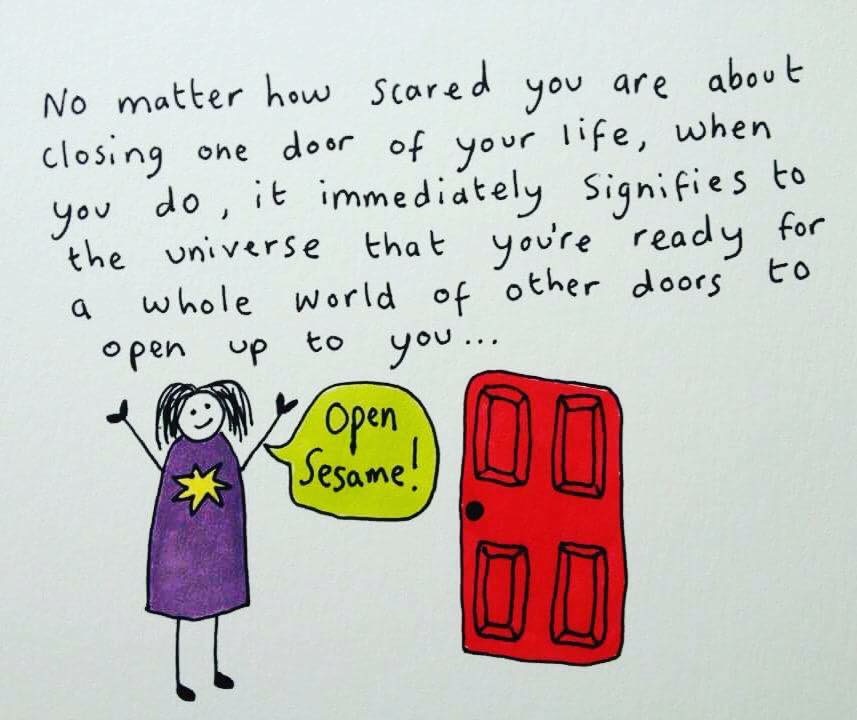 No matter how scared you are about
closing one door of your life, when
you do, it immediately signifies to
the universe that you're ready for
a whole world of other doors to
open up to you...
Open
Sesame!